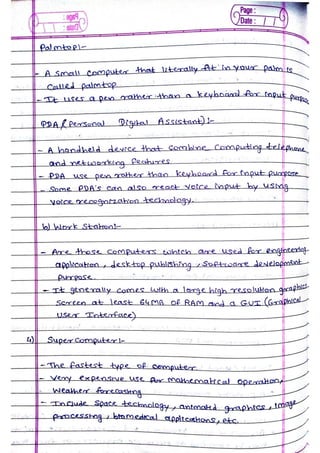 Page :
Date : / /
Palmtop:-
- A small computer that literally fit in your palm is
called palmtop
- It uses a pen rather than a keyboard for input purpose
PDA (Personal Digital Assistant):-
- A handheld device that combine computing telephone
and networking features.
- PDA use pen rather than keyboard for input purpose
- Some PDA's can also react voice input by using
voice recognization technology.
b) Work Station:-
- Are those computers which are used for engineering
application, desktop publishing, software development
purpose.
- It generally comes with a large high resolution graphics
screen at least 64MB of RAM and a GUI (Graphical
User Interface)
4) Super Computer:-
- The fastest type of computer
- Very expensive use for mathematical operation,
Weather forecasting
- Include space technology, animated graphics, image
processing, biomedical applications, etc.